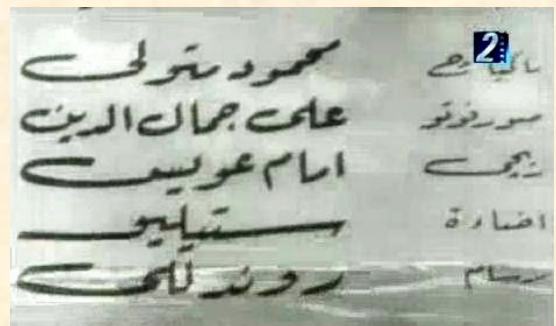 2
ماكياج محمود متولى
صور فوتو على جمال الدين
ريجى امام عويس
اضاءة ستيليو
رسام روندللى